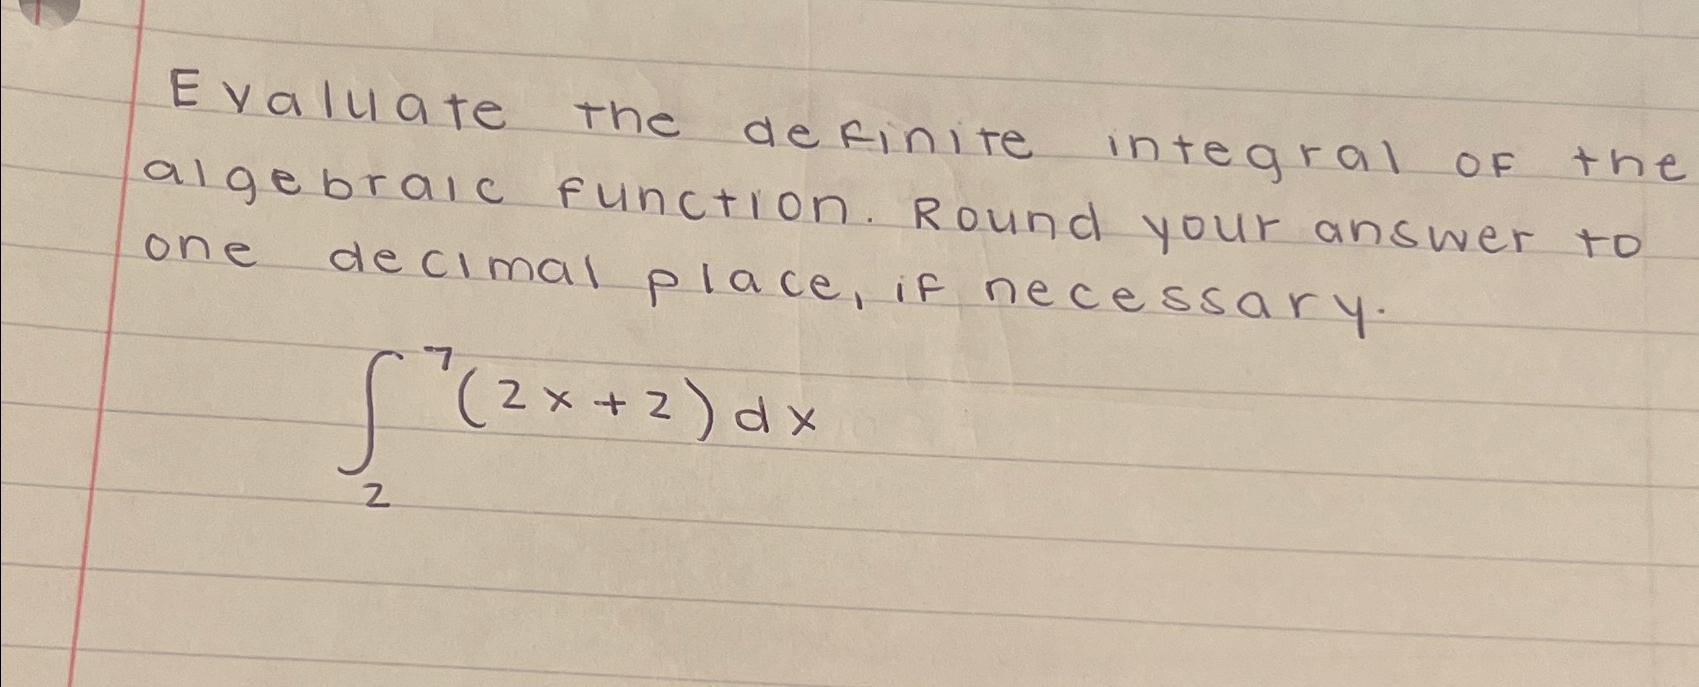 Evaluate the definite integral of the
algebraic function. Round your answer to
one decimal place, if necessary.
∫₂⁷(2x+2)dx